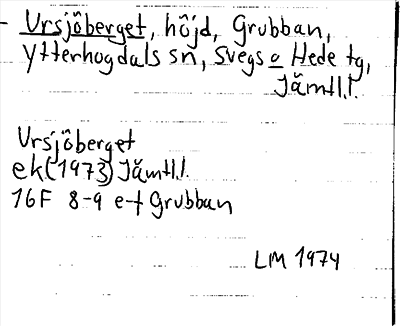 - Ursjöberget, höjd, Grubban,
Ytterhogdals sn, Svegs o Hede tg,
Jämtl.l.
Ursjöberget
ek (1973) Jämtl.l.
16F 8-9 e-f Grubban
LM 1974